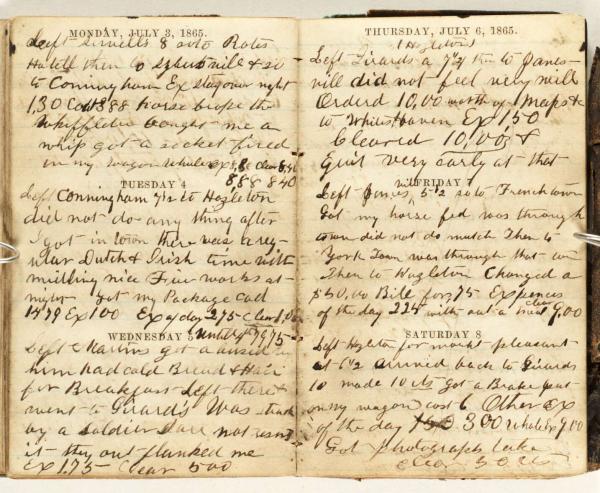 MONDAY, JULY 3, 1865.
Left 8 so to
Hotell then to & so
to Conningham Ex stag over night
1,30 888 horse broke the
Whiffletree bought me a
whip got a socket fixed
in my wagon whole ex 8,88 clear 8,40
888 840
TUESDAY 4
Left Conningham 7 1/2 to Hazleton
did not do any thing after
I got in town there was a reg-
ular Dutch & Irish time with
nice Fire works at
night got my Package Cod
14,79 Ex 100 Ex of day 275 Clear 1,00
WEDNESDAY 5 until 4th 79,75
Left Martins got a
him had cold Bread &
for Breakfast left there &
went to Girards Was
by a soldier dare not resent
it they out flanked me
Ex 1.75 Clear 500
THURSDAY, JULY 6, 1865.
Hazleton
Left Girards a 7 1/4 then to Janes-
vill did not feel very well
Orderd 10,00 worth of Maps &c
to White Haven Ex 1,50
Cleared 10,00 &
Quit very early at that
FRIDAY 7
Left Janes vill 5 1/2 so to Frenchtown
Got my horse fed was through
town did not do mutch Then to
York Town was through that
Then to Hazleton Changed a
$50,00 Bill for 75 Expences
of the day 225 with out a Clear 9,00
SATURDAY 8
Left Hazleton for pleasant
at 6 1/2 arrived back to Girards
10 made 10 cts Got a Brake put
on my wagon cost 6 Other Ex
of the day 3 00 whole Ex 9,00
Got photographs take
clear 50 cts